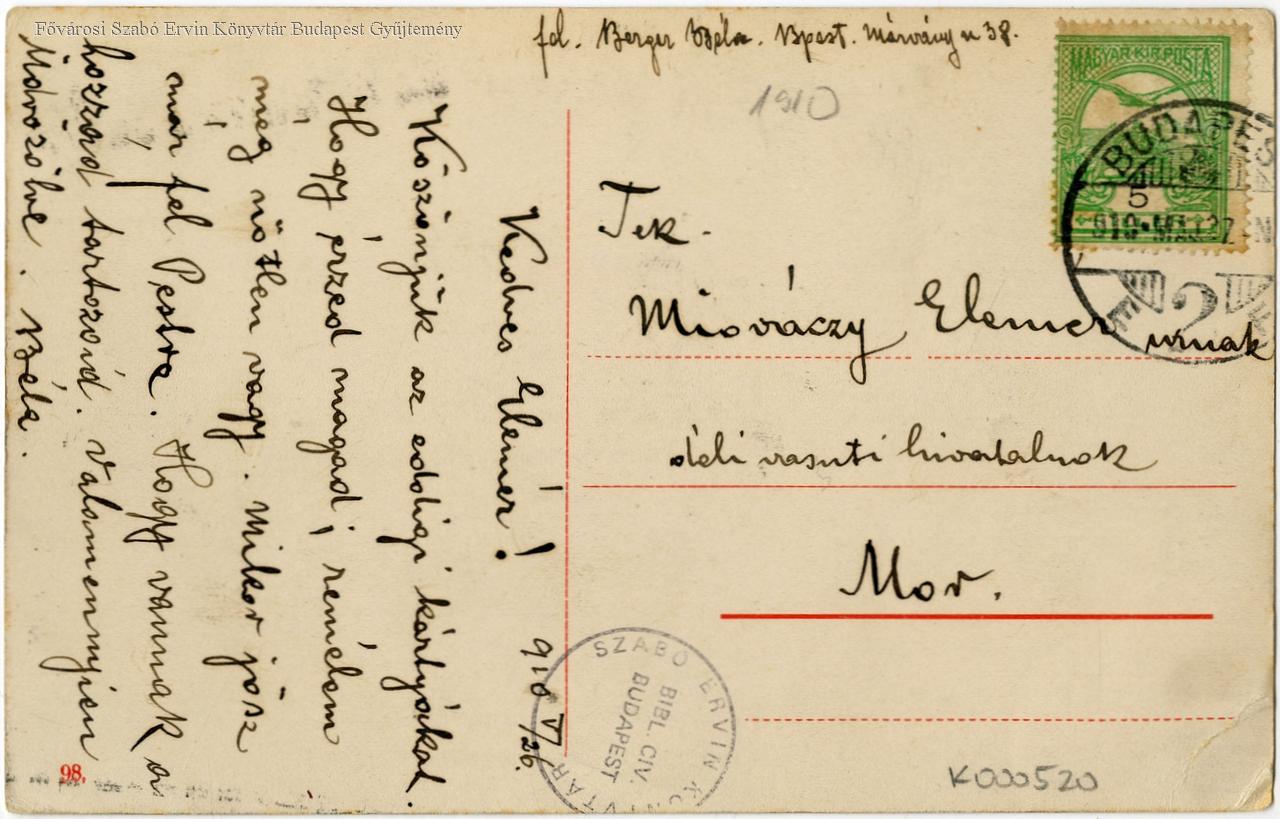 Fővárosi Szabó Ervin Könyvtár Budapest Gyűjtemény
fel. Berger Béla. Bpest. Márvány u 38.
1910
MAGYAR·KIR·POSTA
BUDAPES
5
910·MÁJ·27·N
2
Tek.
Elemer urnak
déli vasuti hivatalnok
Mor.
K000520
SZABÓ ERVIN KÖNYVTÁR
BIBL. CIV.
BUDAPEST
98.
910 V/26.
Kedves Elemér!
Köszönjük az eddigi kártyákat.
Hogy érzed magad? remélem
még nőtlen vagy. Mikor jösz
már fel Pestre. Hogy vannak a
hozzád tartozóid. Valamennyien
üdvözölve. Béla.